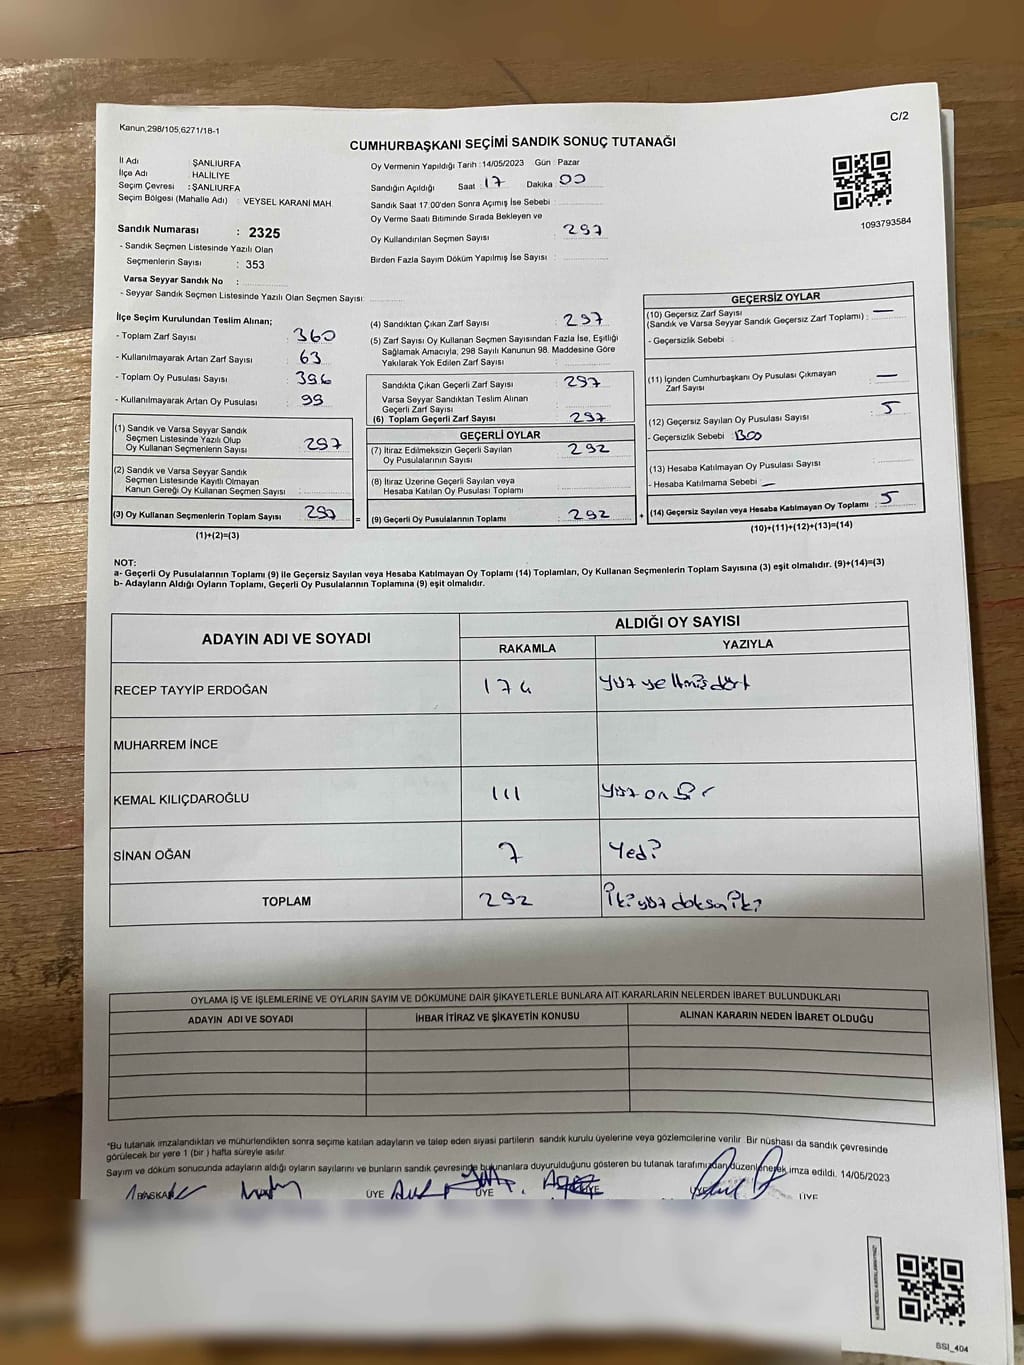 Kanun,298/105,6271/18-1
C/2
CUMHURBAŞKANI SEÇİMİ SANDIK SONUÇ TUTANAĞI
İl Adı ŞANLIURFA
İlçe Adı HALİLİYE
Seçim Çevresi : ŞANLIURFA
Seçim Bölgesi (Mahalle Adı) : VEYSEL KARANİ MAH.
Sandık Numarası : 2325
- Sandık Seçmen Listesinde Yazılı Olan
Seçmenlerin Sayısı : 353
Varsa Seyyar Sandık No :
- Seyyar Sandık Seçmen Listesinde Yazılı Olan Seçmen Sayısı:
Oy Vermenin Yapıldığı Tarih : 14/05/2023 Gün : Pazar
Sandığın Açıldığı Saat : 17 Dakika : 00
Sandık Saat 17.00'den Sonra Açımış İse Sebebi :
Oy Verme Saati Bitiminde Sırada Bekleyen ve
Oy Kullandırılan Seçmen Sayısı : 297
Birden Fazla Sayım Döküm Yapılmış İse Sayısı :
1093793584
İlçe Seçim Kurulundan Teslim Alınan;
- Toplam Zarf Sayısı : 360
- Kullanılmayarak Artan Zarf Sayısı : 63
- Toplam Oy Pusulası Sayısı : 396
- Kullanılmayarak Artan Oy Pusulası : 99
(1) Sandık ve Varsa Seyyar Sandık
Seçmen Listesinde Yazılı Olup
Oy Kullanan Seçmenlerin Sayısı : 297
(2) Sandık ve Varsa Seyyar Sandık
Seçmen Listesinde Kayıtlı Olmayan
Kanun Gereği Oy Kullanan Seçmen Sayısı :
(3) Oy Kullanan Seçmenlerin Toplam Sayısı : 297 =
(1)+(2)=(3)
(4) Sandıktan Çıkan Zarf Sayısı : 297
(5) Zarf Sayısı Oy Kullanan Seçmen Sayısından Fazla İse, Eşitliği
Sağlamak Amacıyla; 298 Sayılı Kanunun 98. Maddesine Göre
Yakılarak Yok Edilen Zarf Sayısı :
Sandıkta Çıkan Geçerli Zarf Sayısı : 297
Varsa Seyyar Sandıktan Teslim Alınan
Geçerli Zarf Sayısı :
(6) Toplam Geçerli Zarf Sayısı : 297
GEÇERLİ OYLAR
(7) İtiraz Edilmeksizin Geçerli Sayılan
Oy Pusulalarının Sayısı : 292
(8) İtiraz Üzerine Geçerli Sayılan veya
Hesaba Katılan Oy Pusulası Toplamı :
(9) Geçerli Oy Pusulalarının Toplamı : 292 +
GEÇERSİZ OYLAR
(10) Geçersiz Zarf Sayısı
(Sandık ve Varsa Seyyar Sandık Geçersiz Zarf Toplamı) : —
- Geçersizlik Sebebi :
(11) İçinden Cumhurbaşkanı Oy Pusulası Çıkmayan
Zarf Sayısı : —
(12) Geçersiz Sayılan Oy Pusulası Sayısı : 5
- Geçersizlik Sebebi :
(13) Hesaba Katılmayan Oy Pusulası Sayısı :
- Hesaba Katılmama Sebebi : —
(14) Geçersiz Sayılan veya Hesaba Katılmayan Oy Toplamı : 5
(10)+(11)+(12)+(13)=(14)
NOT:
a- Geçerli Oy Pusulalarının Toplamı (9) ile Geçersiz Sayılan veya Hesaba Katılmayan Oy Toplamı (14) Toplamları, Oy Kullanan Seçmenlerin Toplam Sayısına (3) eşit olmalıdır. (9)+(14)=(3)
b- Adayların Aldığı Oyların Toplamı, Geçerli Oy Pusulalarının Toplamına (9) eşit olmalıdır.
ADAYIN ADI VE SOYADI
ALDIĞI OY SAYISI
RAKAMLA YAZIYLA
RECEP TAYYİP ERDOĞAN 174 yüz yetmişdört
MUHARREM İNCE
KEMAL KILIÇDAROĞLU 111 yüz on bir
SİNAN OĞAN 7 Yedi
TOPLAM 292 İkiyüz doksan iki
OYLAMA İŞ VE İŞLEMLERİNE VE OYLARIN SAYIM VE DÖKÜMUNE DAİR ŞİKAYETLERLE BUNLARA AİT KARARLARIN NELERDEN İBARET BULUNDUKLARI
ADAYIN ADI VE SOYADI İHBAR İTİRAZ VE ŞİKAYETİN KONUSU ALINAN KARARIN NEDEN İBARET OLDUĞU
*Bu tutanak imzalandıktan ve mühürlendikten sonra seçime katılan adayların ve talep eden siyasi partilerin sandık kurulu üyelerine veya gözlemcilerine verilir. Bir nüshası da sandık çevresinde
görülecek bir yere 1 (bir ) hafta süreyle asılır.
Sayım ve döküm sonucunda adayların aldığı oyların sayılarını ve bunların sandık çevresinde bulunanlara duyurulduğunu gösteren bu tutanak tarafımızdan düzenlenerek imza edildi. 14/05/2023
BAŞKAN ÜYE ÜYE ÜYE ÜYE ÜYE
SSI_404